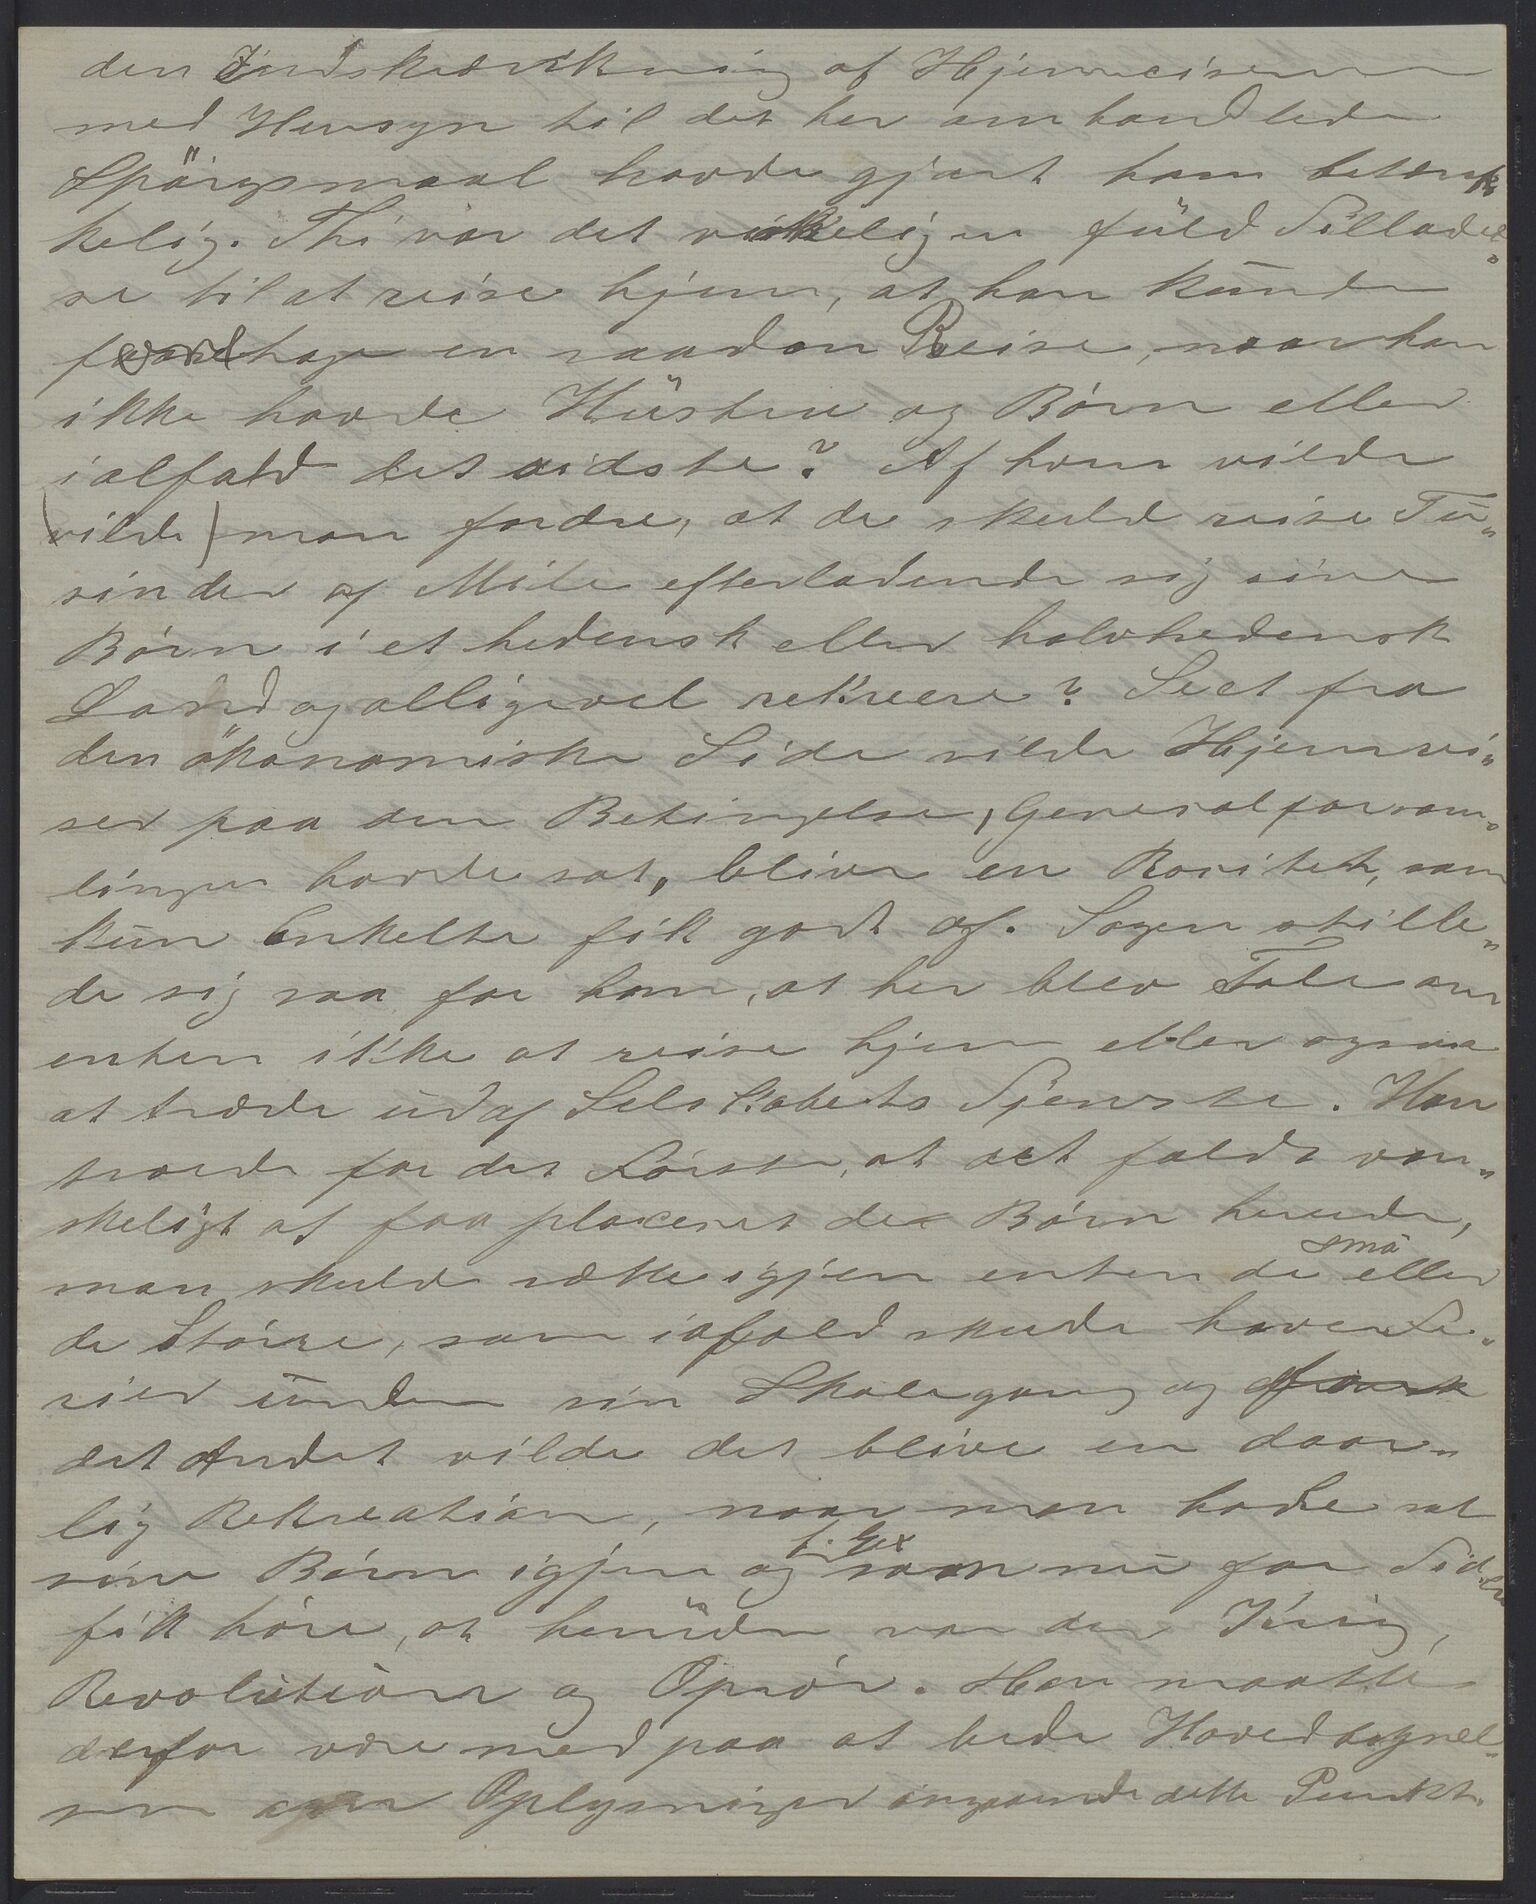 den Indskrænkning af Hjemreiserne
med Hensyn til det her omhandlede
Spörgsmaal havde gjort ham betænk
kelig. Thi var det virkeligen fuld Tillad
se til at reise hjem, at han kunde
foretage en saadan Reise, naar han
ikke havde Hustru og Börn eller
ialfald det sidste? Af ham vilde
(vilde) man fordre, at de skulde reise Tu„
sinder af Mile efterladende sig sine
Börn i et hedensk eller halvhedensk
Land og alligevel rekreere? Seet fra
den ökonomiske Side vilde Hjemrei„
ser paa den Betingelse, Generalforsam„
lingen havde sat, blive en Raritet, som
kun Enkelte fik godt af. Sagen stille„
de sig saa for ham, at her blev Tale om
enten ikke at reise hjem eller ogsaa
at træde ud af Selskabets Tjeneste. Han
troede for det Förste, at det faldt van„
skeligt at faa placeret de Börn herude,
man skulde sætte igjen enten de små eller
de Större, som iafald skulde have Fe„
rier under sin Skolegang og for
det Andet vilde det blive en daar„
lig Rekreation, naar man havde sat
sine Börn igjen og f. Ex som nu for Tiden
fik höre, at herude var der Krig,
Revolution og Oprör. Han maatte
derfor være med paa at bede Hovedbestyrel„
sen om Oplysninger angaaende dette Punkt.